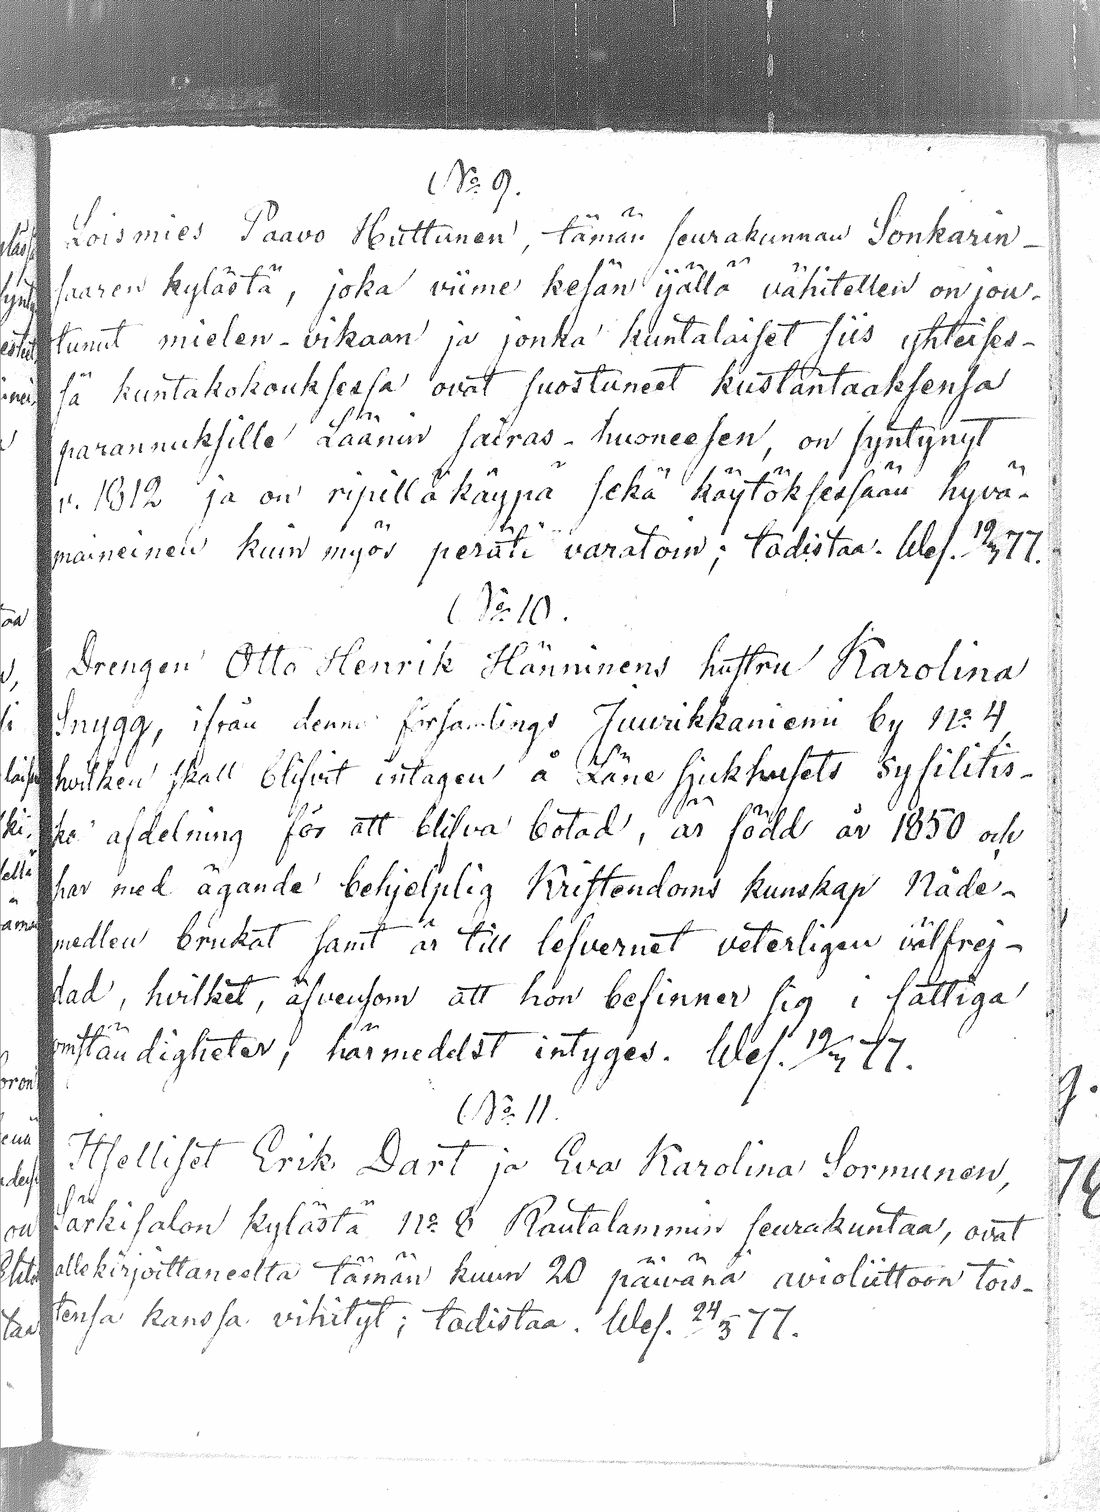 No 9.
Loismies Paavo Huttunen, tämän seurakunnan Sonkarin-
saaren kylästä, joka viime kesän ijällä vähitellen on jou-
tunut mielen-vikaan ja jonka kuntalaiset siis yhteises-
sä kuntakokouksessa ovat suostuneet kustantaaksensa
parannuksille Läänin sairas-huoneesen, on syntynyt
v. 1812 ja on ripillä käypä sekä käytöksessään hyvä-
maineinen kuin myös peräti varatoin; todistaa. Wes. 19/3 77.
No 10.
Drengen Otto Henrik Hänninens hustru Karolina
Snygg, ifrån denna församlings Juurikkaniemi by No 4,
hvilken skall blifvit intagen å Läne sjukhusets syfilitis-
ka afdelning för att blifva botad, är född år 1850 och
har med ägande behjelplig Kristendoms kunskap Nåde-
medlen brukat samt är till lefvernet veterligen välfrej-
dad, hvilket, äfvensom att hon befinner sig i fattiga
omständigheter, härmedelst intyges. Wes. 19/3 77.
No 11.
Itselliset Erik Dart ja Eva Karolina Sormunen,
Särkisalon kylästä No 8 Rautalammin seurakuntaa, ovat
allekirjoittaneelta tämän kuun 20 päivänä avioliittoon tois-
tensa kanssa vihityt; todistaa. Wes. 24/3 77.